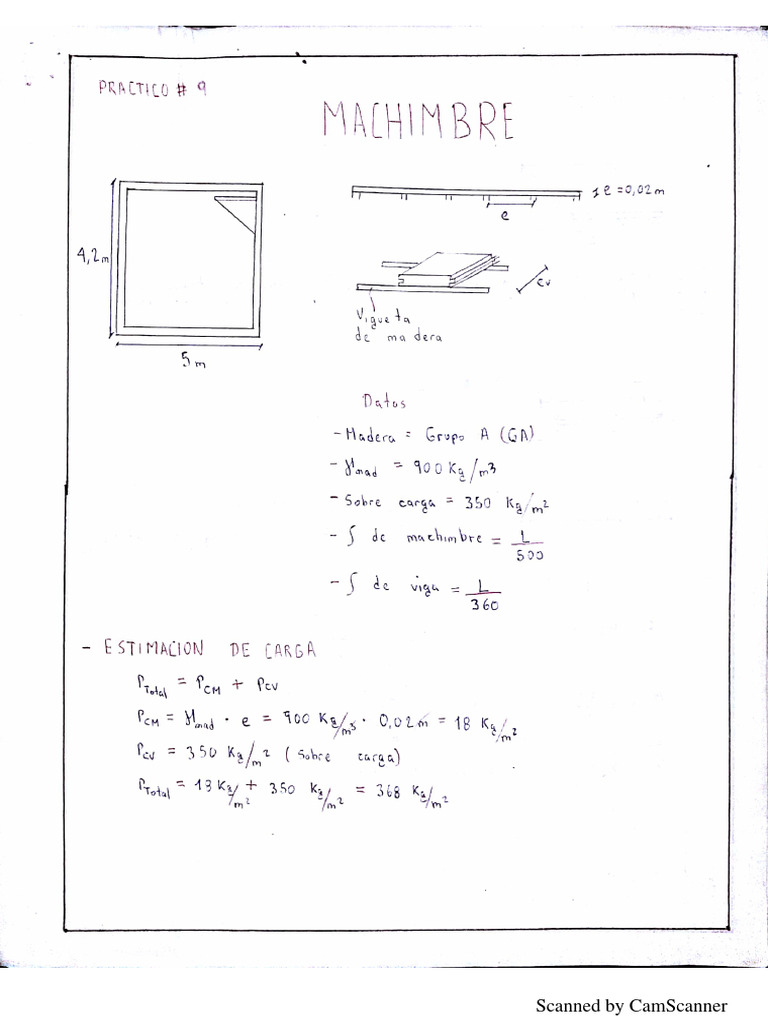 PRACTICO # 9
MACHIMBRE
e = 0,02 m
e
4,2 m
cv
Vigueta
de madera
5 m
Datos
- Madera = Grupo A (GA)
- γmad = 900 Kg/m3
- Sobre carga = 350 Kg/m2
- ∫ de machimbre = L/500
- ∫ de viga = L/360
- ESTIMACION DE CARGA
PTotal = PCM + PCV
PCM = γmad · e = 900 Kg/m3 · 0,02 m = 18 Kg/m2
PCV = 350 Kg/m2 (Sobre carga)
PTotal = 18 Kg/m2 + 350 Kg/m2 = 368 Kg/m2
Scanned by CamScanner